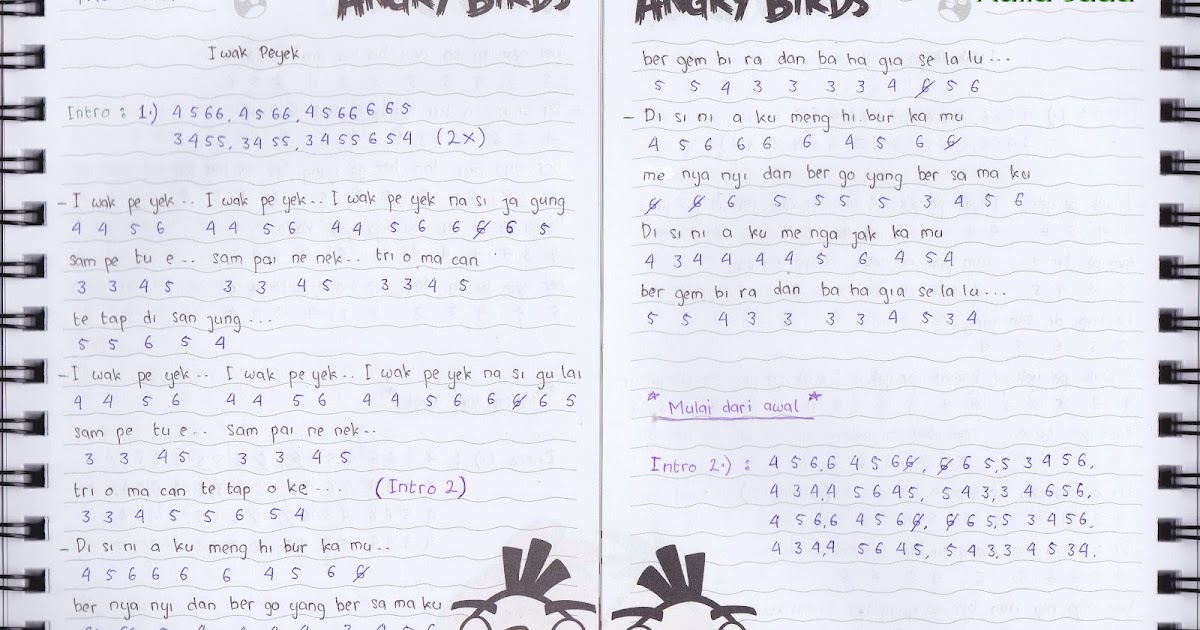 ANGRY BIRDS
Iwak Peyek
Intro : 1.) 4 5 6 6, 4 5 6 6, 4 5 6 6 6 6 5
3 4 5 5, 3 4 5 5, 3 4 5 5 6 5 4 (2x)
- I wak pe yek.. I wak pe yek.. I wak pe yek na si ja gung
4 4 5 6 4 4 5 6 4 4 5 6 6 6̸ 6 5
sam pe tu e.. sam pai ne nek.. tri o ma can
3 3 4 5 3 3 4 5 3 3 4 5
te tap di san jung...
5 5 6 5 4
- I wak pe yek.. I wak pe yek.. I wak pe yek na si gu lai
4 4 5 6 4 4 5 6 4 4 5 6 6 6̸ 6 5
sam pe tu e.. sam pai ne nek..
3 3 4 5 3 3 4 5
tri o ma can te tap o ke... (Intro 2)
3 3 4 5 5 6 5 4
- Di si ni a ku meng hi bur ka mu..
4 5 6 6 6 6 4 5 6 6̸
ber nya nyi dan ber go yang ber sa ma ku
ANGRY BIRDS
ber gem bi ra dan ba ha gia se la lu...
5 5 4 3 3 3 3 4 6̸ 5 6
- Di si ni a ku meng hi bur ka mu
4 5 6 6 6 6 4 5 6 6̸
me nya nyi dan ber go yang ber sa ma ku
6̸ 6̸ 6 5 5 5 5 3 4 5 6
Di si ni a ku me nga jak ka mu
4 3 4 4 4 4 5 6 4 5 4
ber gem bi ra dan ba ha gia se la lu...
5 5 4 3 3 3 3 4 5 3 4
* Mulai dari awal *
Intro 2.) : 4 5 6,6 4 5 6 6̸, 6̸ 6 5,5 3 4 5 6,
4 3 4,4 5 6 4 5, 5 4 3,3 4 6 5 6,
4 5 6,6 4 5 6 6̸, 6̸ 6 5,5 3 4 5 6,
4 3 4,4 5 6 4 5, 5 4 3,3 4 5 3 4.